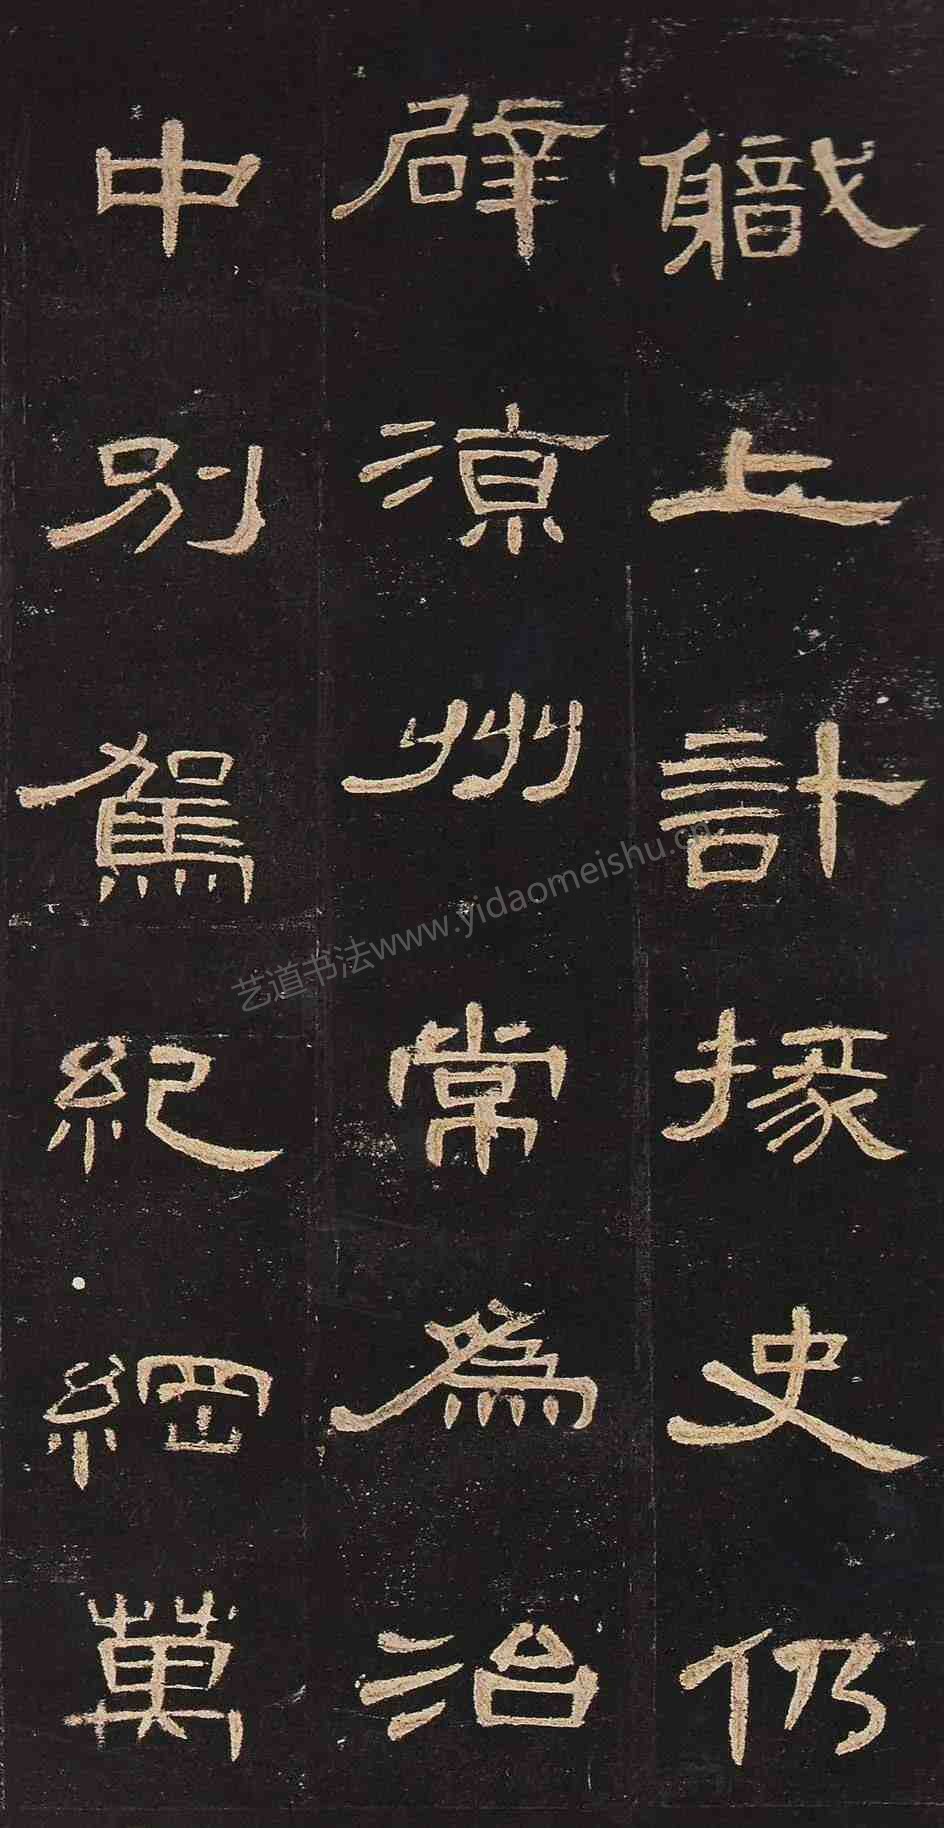 職上計掾史仍
辟涼州常為治
中別駕紀綱萬
艺道书法www.yidaomeishu.cn